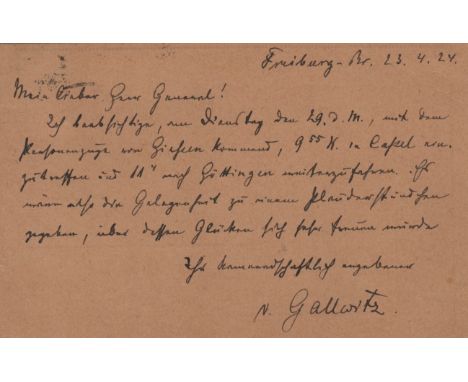 Freiburg-Br. 23. 4. 24.
Mein lieber Herr General!
Ich beabsichtige, am Dienstag den 29. d. M., mit dem
Personenzuge von Gießen kommend, 9 55 N. in Cassel ein-
zutreffen und 11 nach Göttingen weiterzufahren. Es
wäre also die Gelegenheit zu einem Plauderstündchen
gegeben, über dessen Glücken sich sehr freuen würde
Ihr kameradschaftlich ergebener
v. Gallwitz.